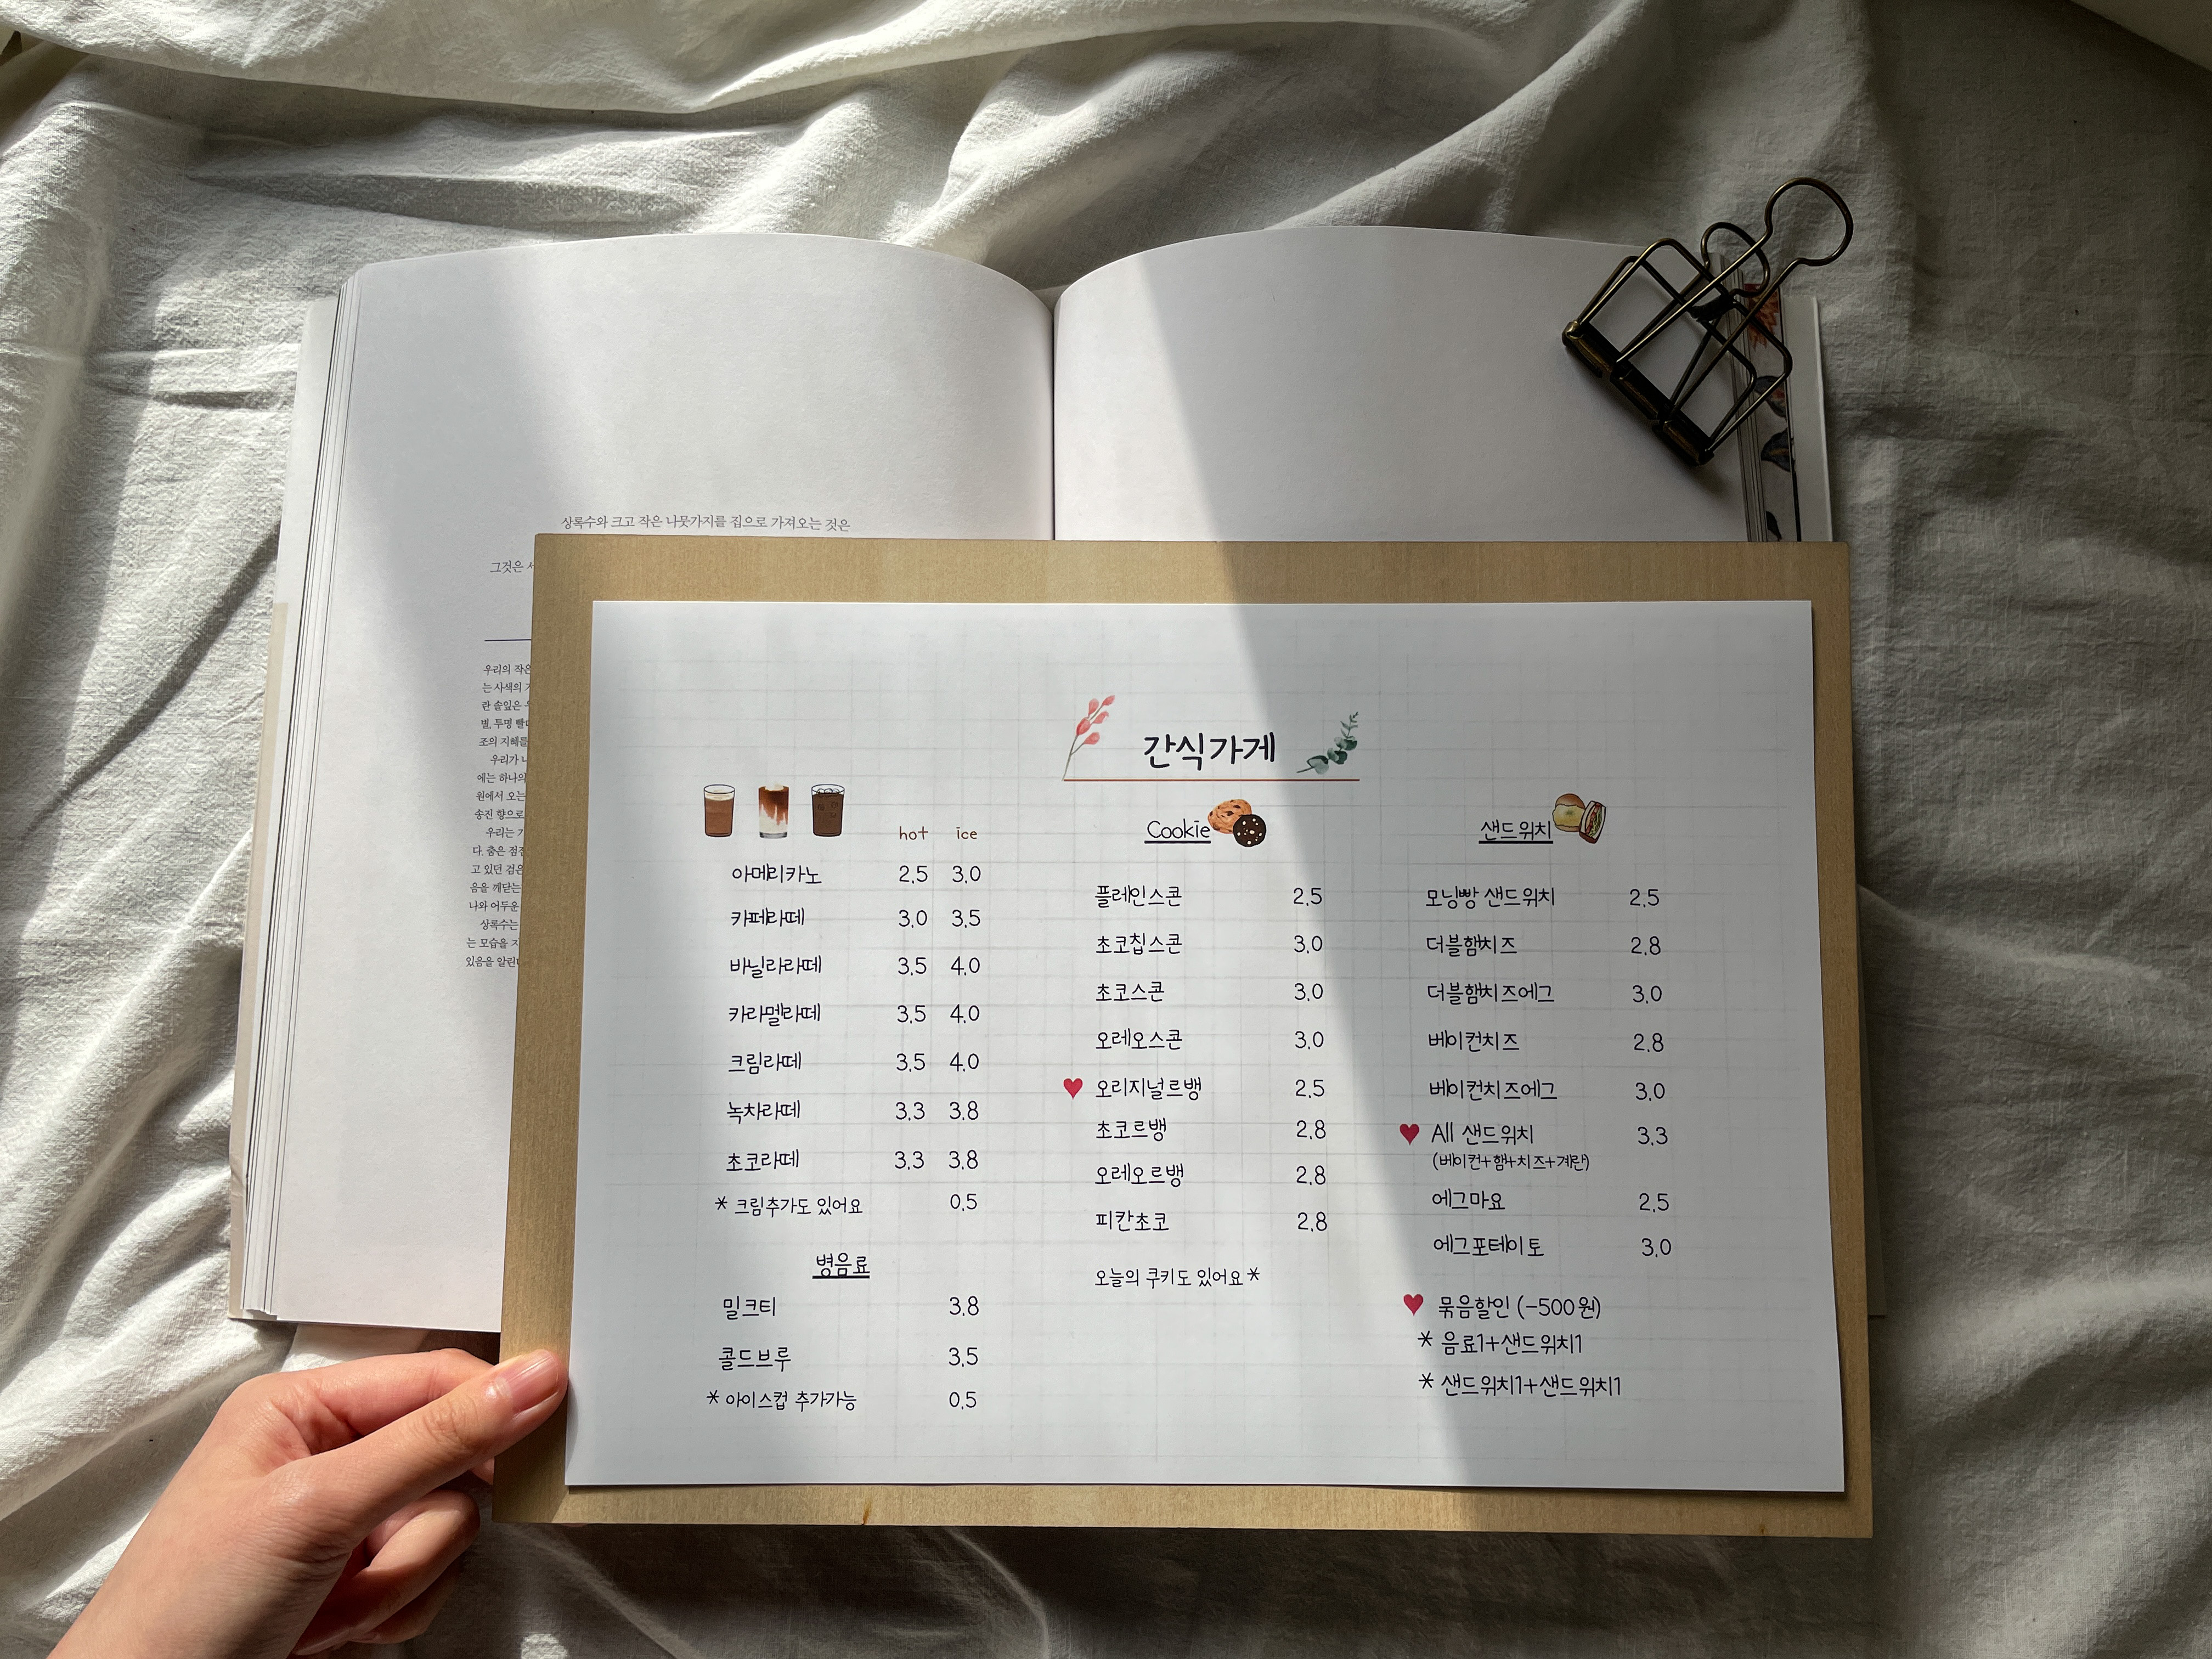 상록수와 크고 작은 나뭇가지를 집으로 가져오는 것은
그것은
우리의 작은
는 사색의
란 솔잎은
별, 투명
조의 지혜를
우리가
에는 하나의
원에서 오는
송진 향으로
우리는
다. 춤은
고 있던 검은
음을 깨닫는
나와 어두운
상록수는
는 모습을
있음을
간식가게
hot ice
아메리카노 2.5 3.0
카페라떼 3.0 3.5
바닐라라떼 3.5 4.0
카라멜라떼 3.5 4.0
크림라떼 3.5 4.0
녹차라떼 3.3 3.8
초코라떼 3.3 3.8
* 크림추가도 있어요 0.5
병음료
밀크티 3.8
콜드브루 3.5
* 아이스컵 추가가능 0.5
Cookie
플레인스콘 2.5
초코칩스콘 3.0
초코스콘 3.0
오레오스콘 3.0
♥ 오리지널르뱅 2.5
초코르뱅 2.8
오레오르뱅 2.8
피칸초코 2.8
오늘의 쿠키도 있어요*
샌드위치
모닝빵 샌드위치 2.5
더블햄치즈 2.8
더블햄치즈에그 3.0
베이컨치즈 2.8
베이컨치즈에그 3.0
♥ All 샌드위치 3.3
(베이컨+햄+치즈+계란)
에그마요 2.5
에그포테이토 3.0
♥ 묶음할인 (-500원)
* 음료1+샌드위치1
* 샌드위치1+샌드위치1